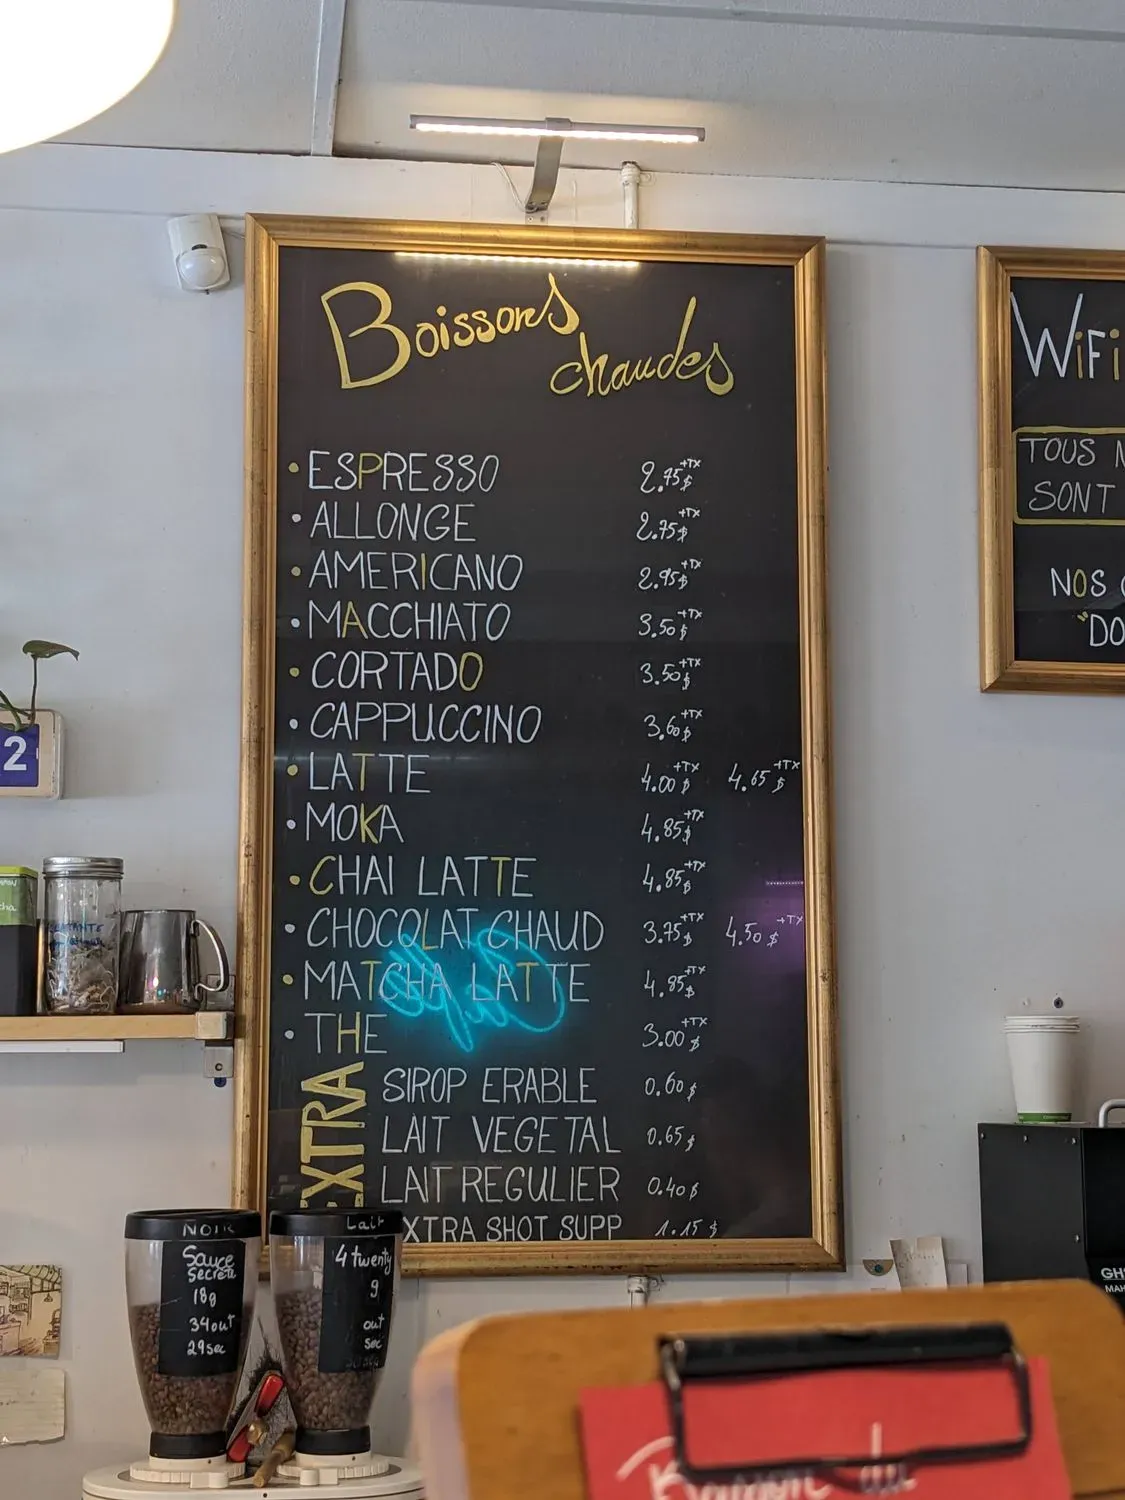 Boissons
chaudes
• ESPRESSO 2.75$ +TX
• ALLONGE 2.75$ +TX
• AMERICANO 2.95$ +TX
• MACCHIATO 3.50$ +TX
• CORTADO 3.50$ +TX
• CAPPUCCINO 3.60$ +TX
• LATTE 4.00$ +TX 4.65$ +TX
• MOKA 4.85$ +TX
• CHAI LATTE 4.85$ +TX
• CHOCOLAT CHAUD 3.75$ +TX 4.50$ +TX
• MATCHA LATTE 4.85$ +TX
• THE 3.00$ +TX
EXTRA
SIROP ERABLE 0.60$
LAIT VEGETAL 0.65$
LAIT REGULIER 0.40$
EXTRA SHOT SUPP 1.15$
WiFi
TOUS
SONT
NOS
"DO
2
NOIR
Sauce
Secrète
18g
34out
29sec
Lait
4twenty
g
out
sec
GHS
MAH